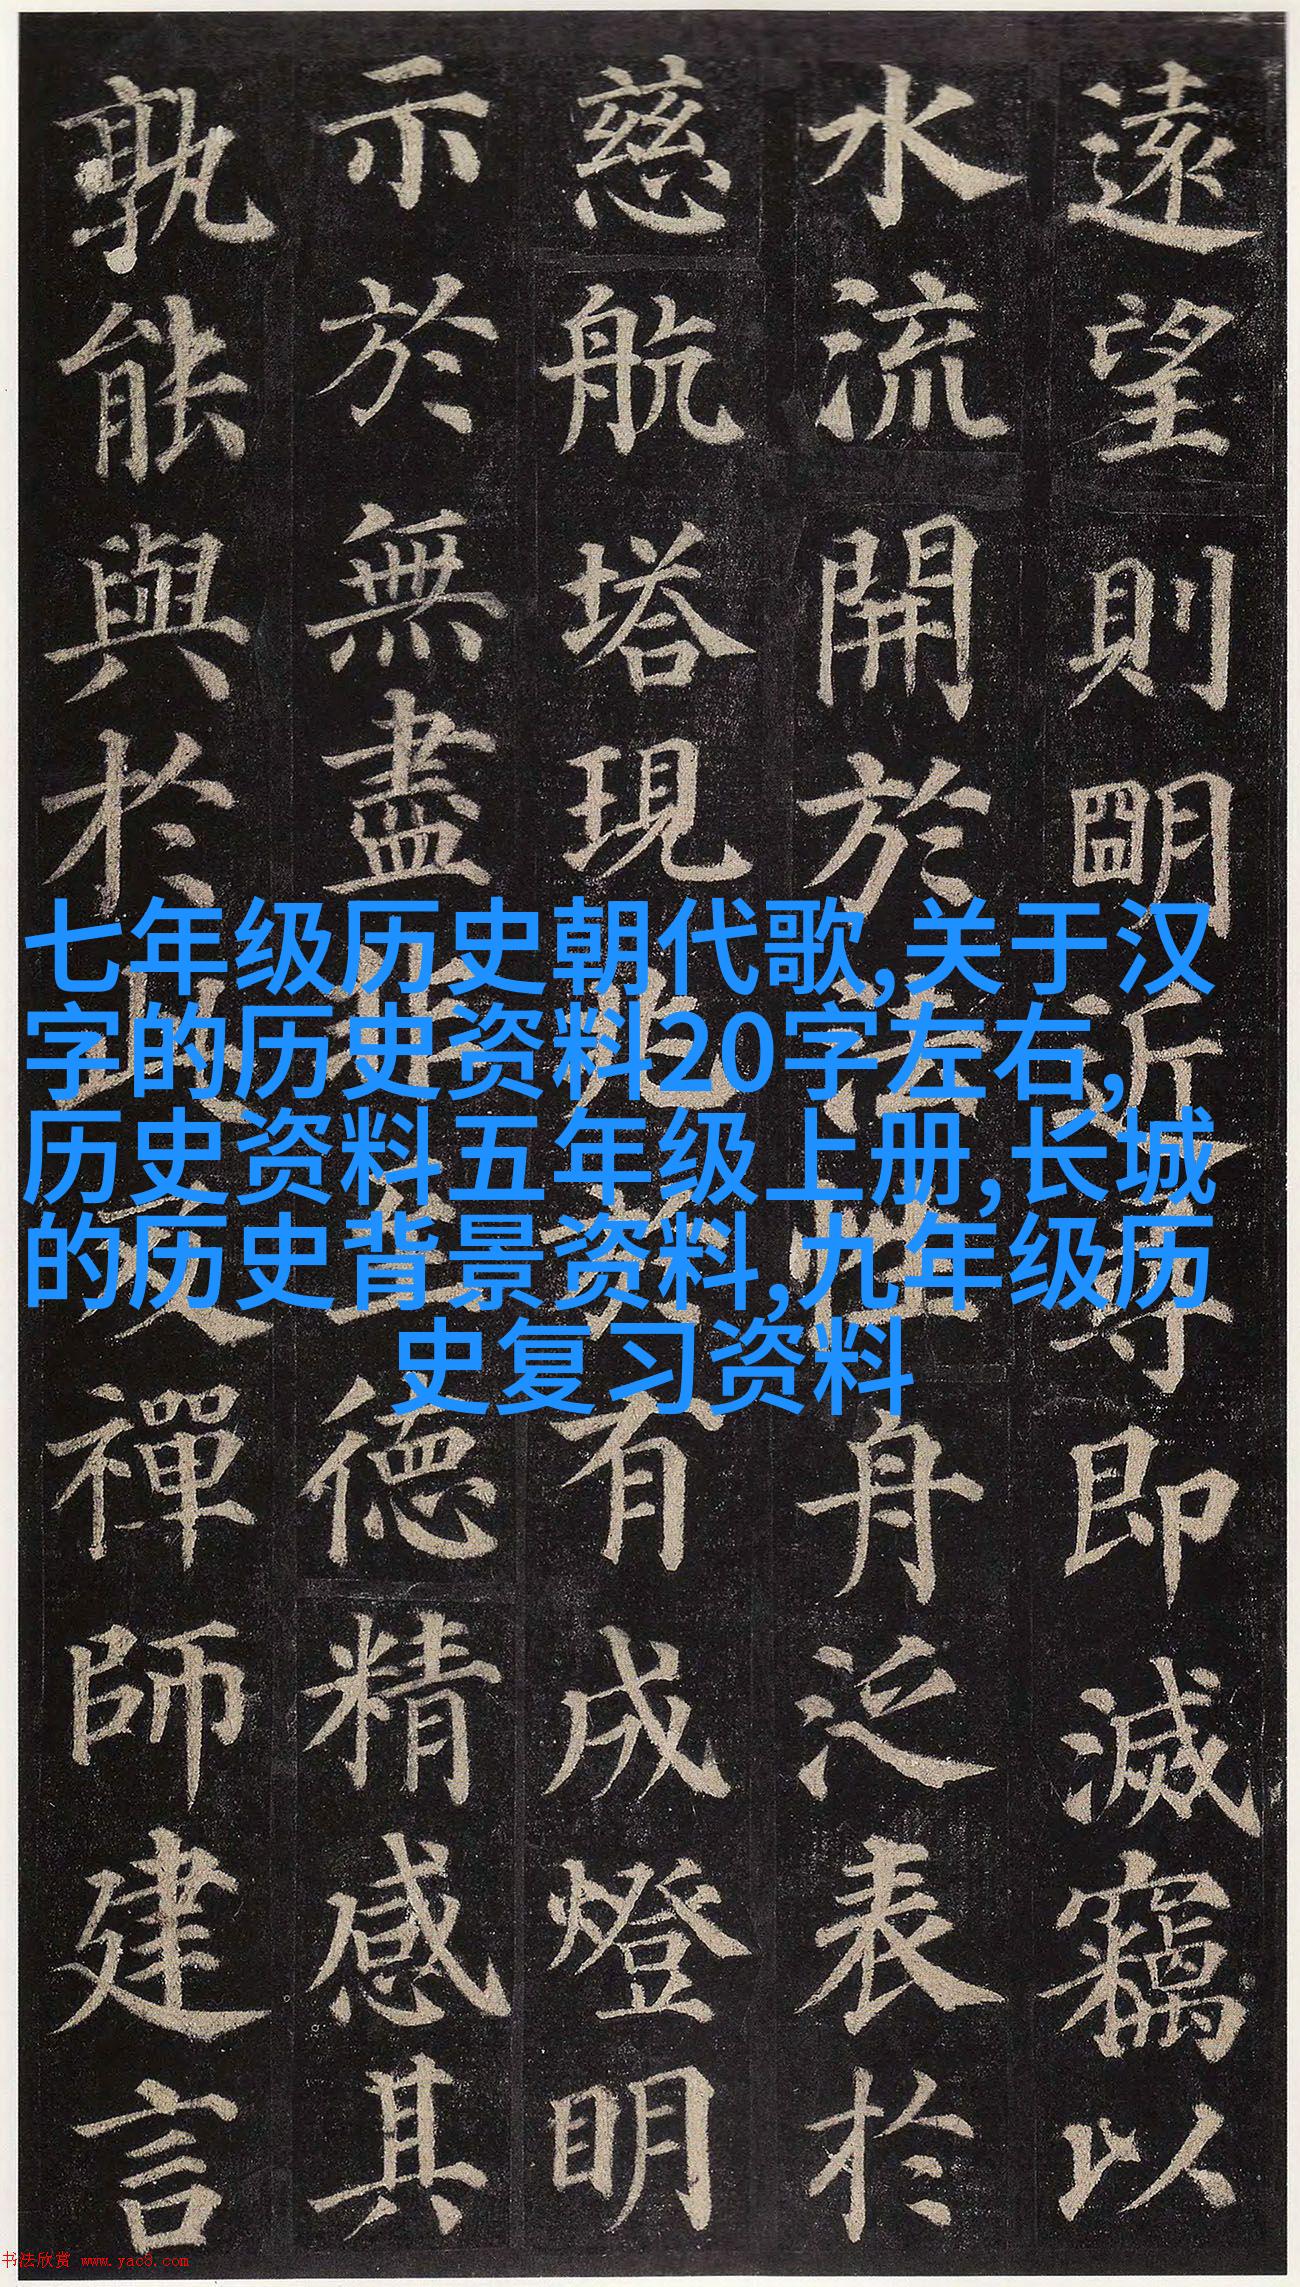 遠望則朙近尋即滅竊以
水流開於法性舟泛表於
慈航塔現兆於有成燈明
示於無盡非至德精感其
孰能與於此及禪師建言
七年级历史朝代歌,关于汉
字的历史资料20字左右,
历史资料五年级上册,长城
的历史背景资料,九年级历
史复习资料
书法欣赏 www.yac8.com